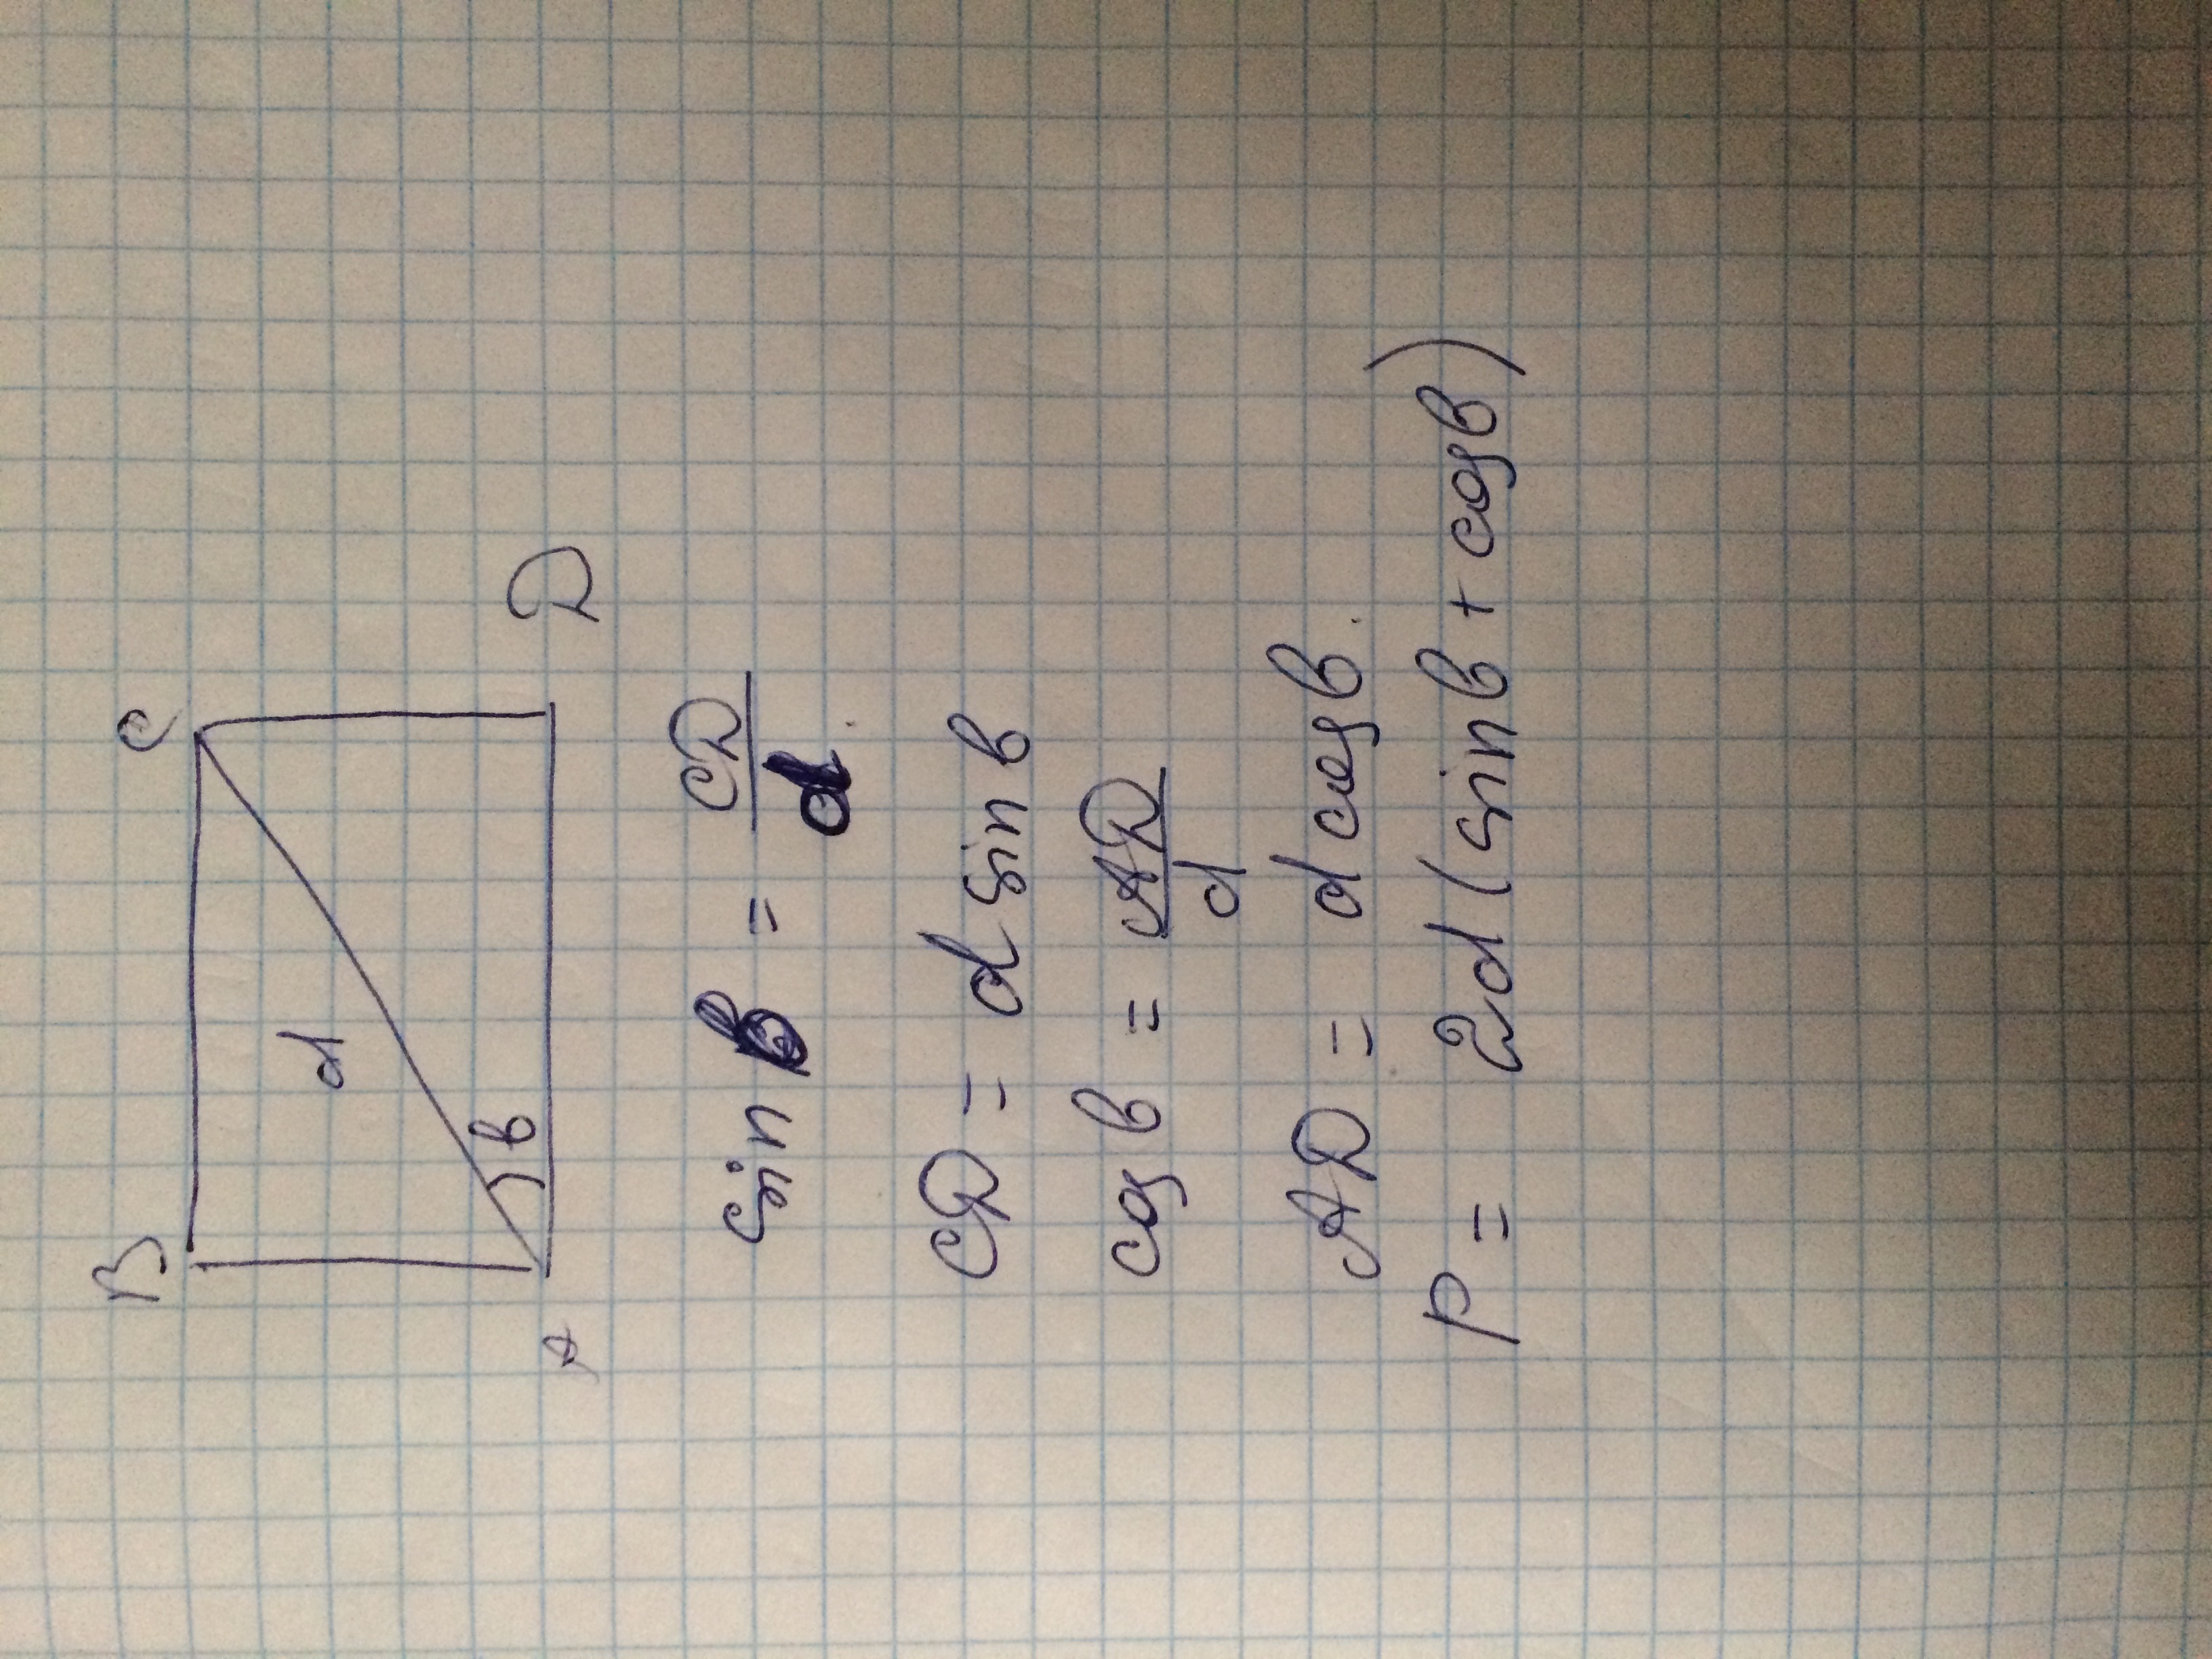 B C
d
в
A D
sin в = CD/d
CD = d sin в
cos в = AD/d
AD = d cos в.
P = 2d(sin в + cos в)